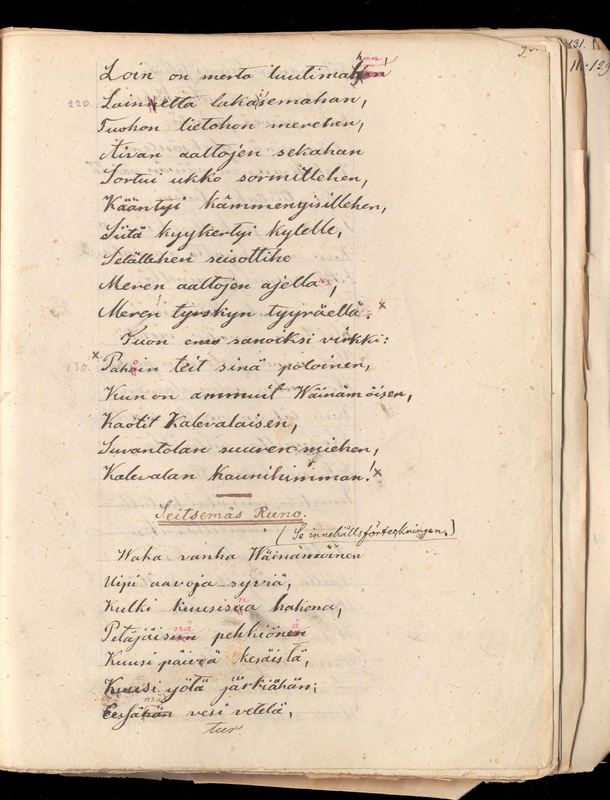 95.
131.
11.129
Loin on merta luutimahan,
220. Lainetta lukaisemahan,
Tuohon tietohon merehen,
Aivan aaltojen sekahan
Sortui ukko sormillehen,
Kääntyi kämmenyisillehen,
Siitä kyykertyi kylelle,
Selällehen seisottihe
Meren aaltojen ajella,
Meren tyrskyn tyyräellä. x
Tuon emo sanoiksi virkki:
x
230. Pahoin teit sinä poloinen,
Kun on ammuit Wäinämöisen,
Kaotit Kalevalaisen,
Suvantolan suuren miehen,
Kalevalan kaunihimman! x
Seitsemäs Runo.
(Se innehållsförtekningen.)
Waka vanha Wäinämöinen
Uipi aavoja syviä,
Kulki kuusisna hakona,
Petäjäisnä pehkiönä
Kuusi päiveä kesäistä,
Kuusi yötä järkiähän;
Eessänsä vesi vetelä,
tur